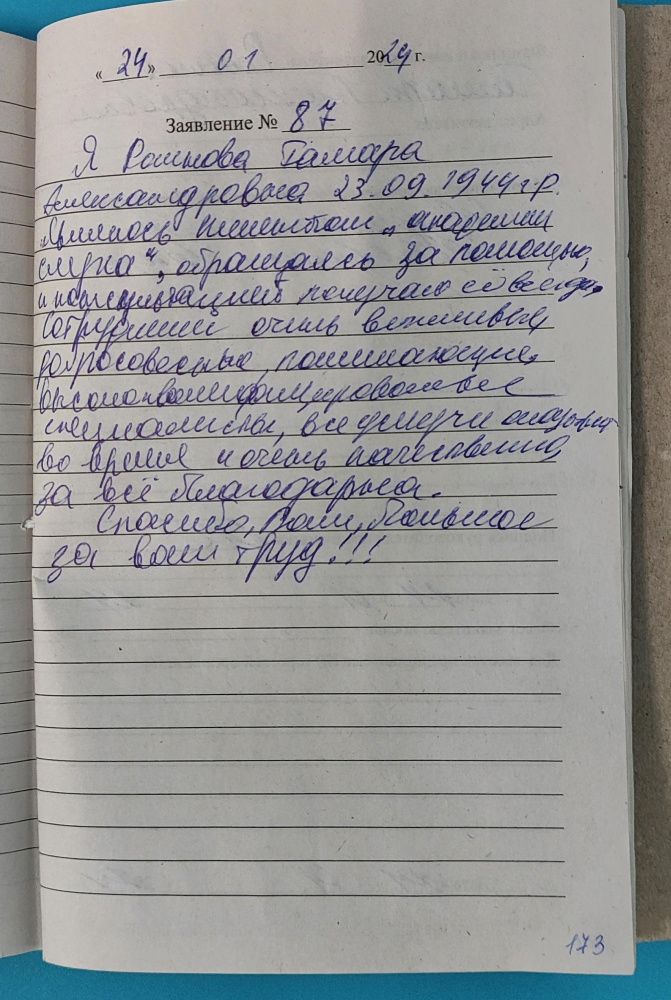 «24» 01 2024 г.
Заявление № 87
Я Тамара
Александровна 23.09.1944 г.р.
являюсь клиентом „Академии
слуха", обращаясь за помощью,
и консультацией получаю её всегда.
Сотрудники очень вежливые,
добросовестные, понимающие,
высококвалифицированные
специалисты, все услуги
во время и очень качественно
за всё благодарна.
Спасибо, Вам, большое
за ваш труд!!!
173